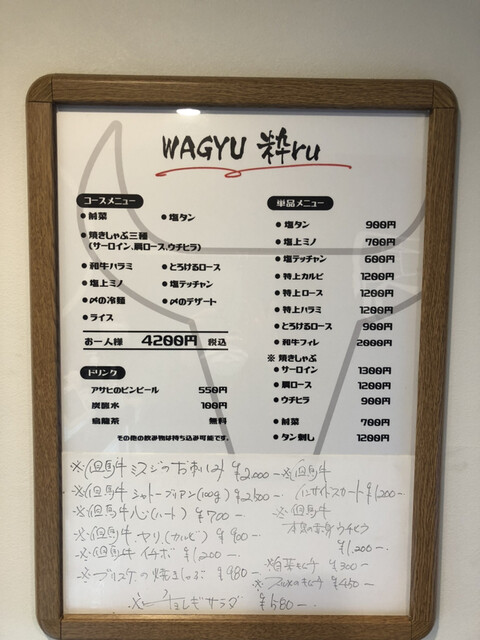 WAGYU 粋ru
コースメニュー
●前菜 ●塩タン
●焼きしゃぶ三種
(サーロイン、肩ロース、ウチヒラ)
●和牛ハラミ ●とろけるロース
●塩上ミノ ●塩テッチャン
●〆の冷麺 ●〆のデザート
●ライス
お一人様 4200円 税込
ドリンク
アサヒのビンビール 550円
炭酸水 100円
烏龍茶 無料
その他の飲み物は持ち込み可能です。
単品メニュー
●塩タン 900円
●塩上ミノ 700円
●塩テッチャン 600円
●特上カルビ 1200円
●特上ロース 1200円
●特上ハラミ 1200円
●とろけるロース 900円
●和牛フィレ 2000円
※ 焼きしゃぶ
●サーロイン 1300円
●肩ロース 1200円
●ウチヒラ 900円
●前菜 700円
●タン刺し 1200円
※但馬牛 ミスジのお刺しみ ¥2,000ー
※但馬牛 シャトーブリアン(100g) ¥2,500ー
※但馬牛 心(ハート) ¥700ー
※但馬牛 ヤリ(カルビ) ¥900ー
※但馬牛 イチボ ¥1,200ー
※ブリスケの焼きしゃぶ ¥980ー
※チョレギサラダ ¥580ー
※但馬牛
インサイドスカート ¥1,200ー
※但馬牛
ウチヒラ
¥1,200ー
※白菜キムチ ¥300ー
※キムチ ¥450ー